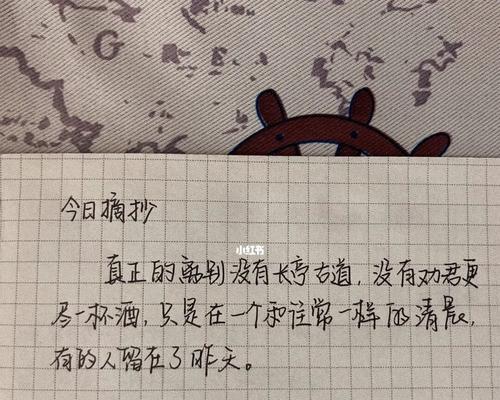 G
今日摘抄
小红书
真正的离别没有长亭古道，没有劝君更
尽一杯酒，只是在一个和往常一样的清晨，
有的人留在了昨天。